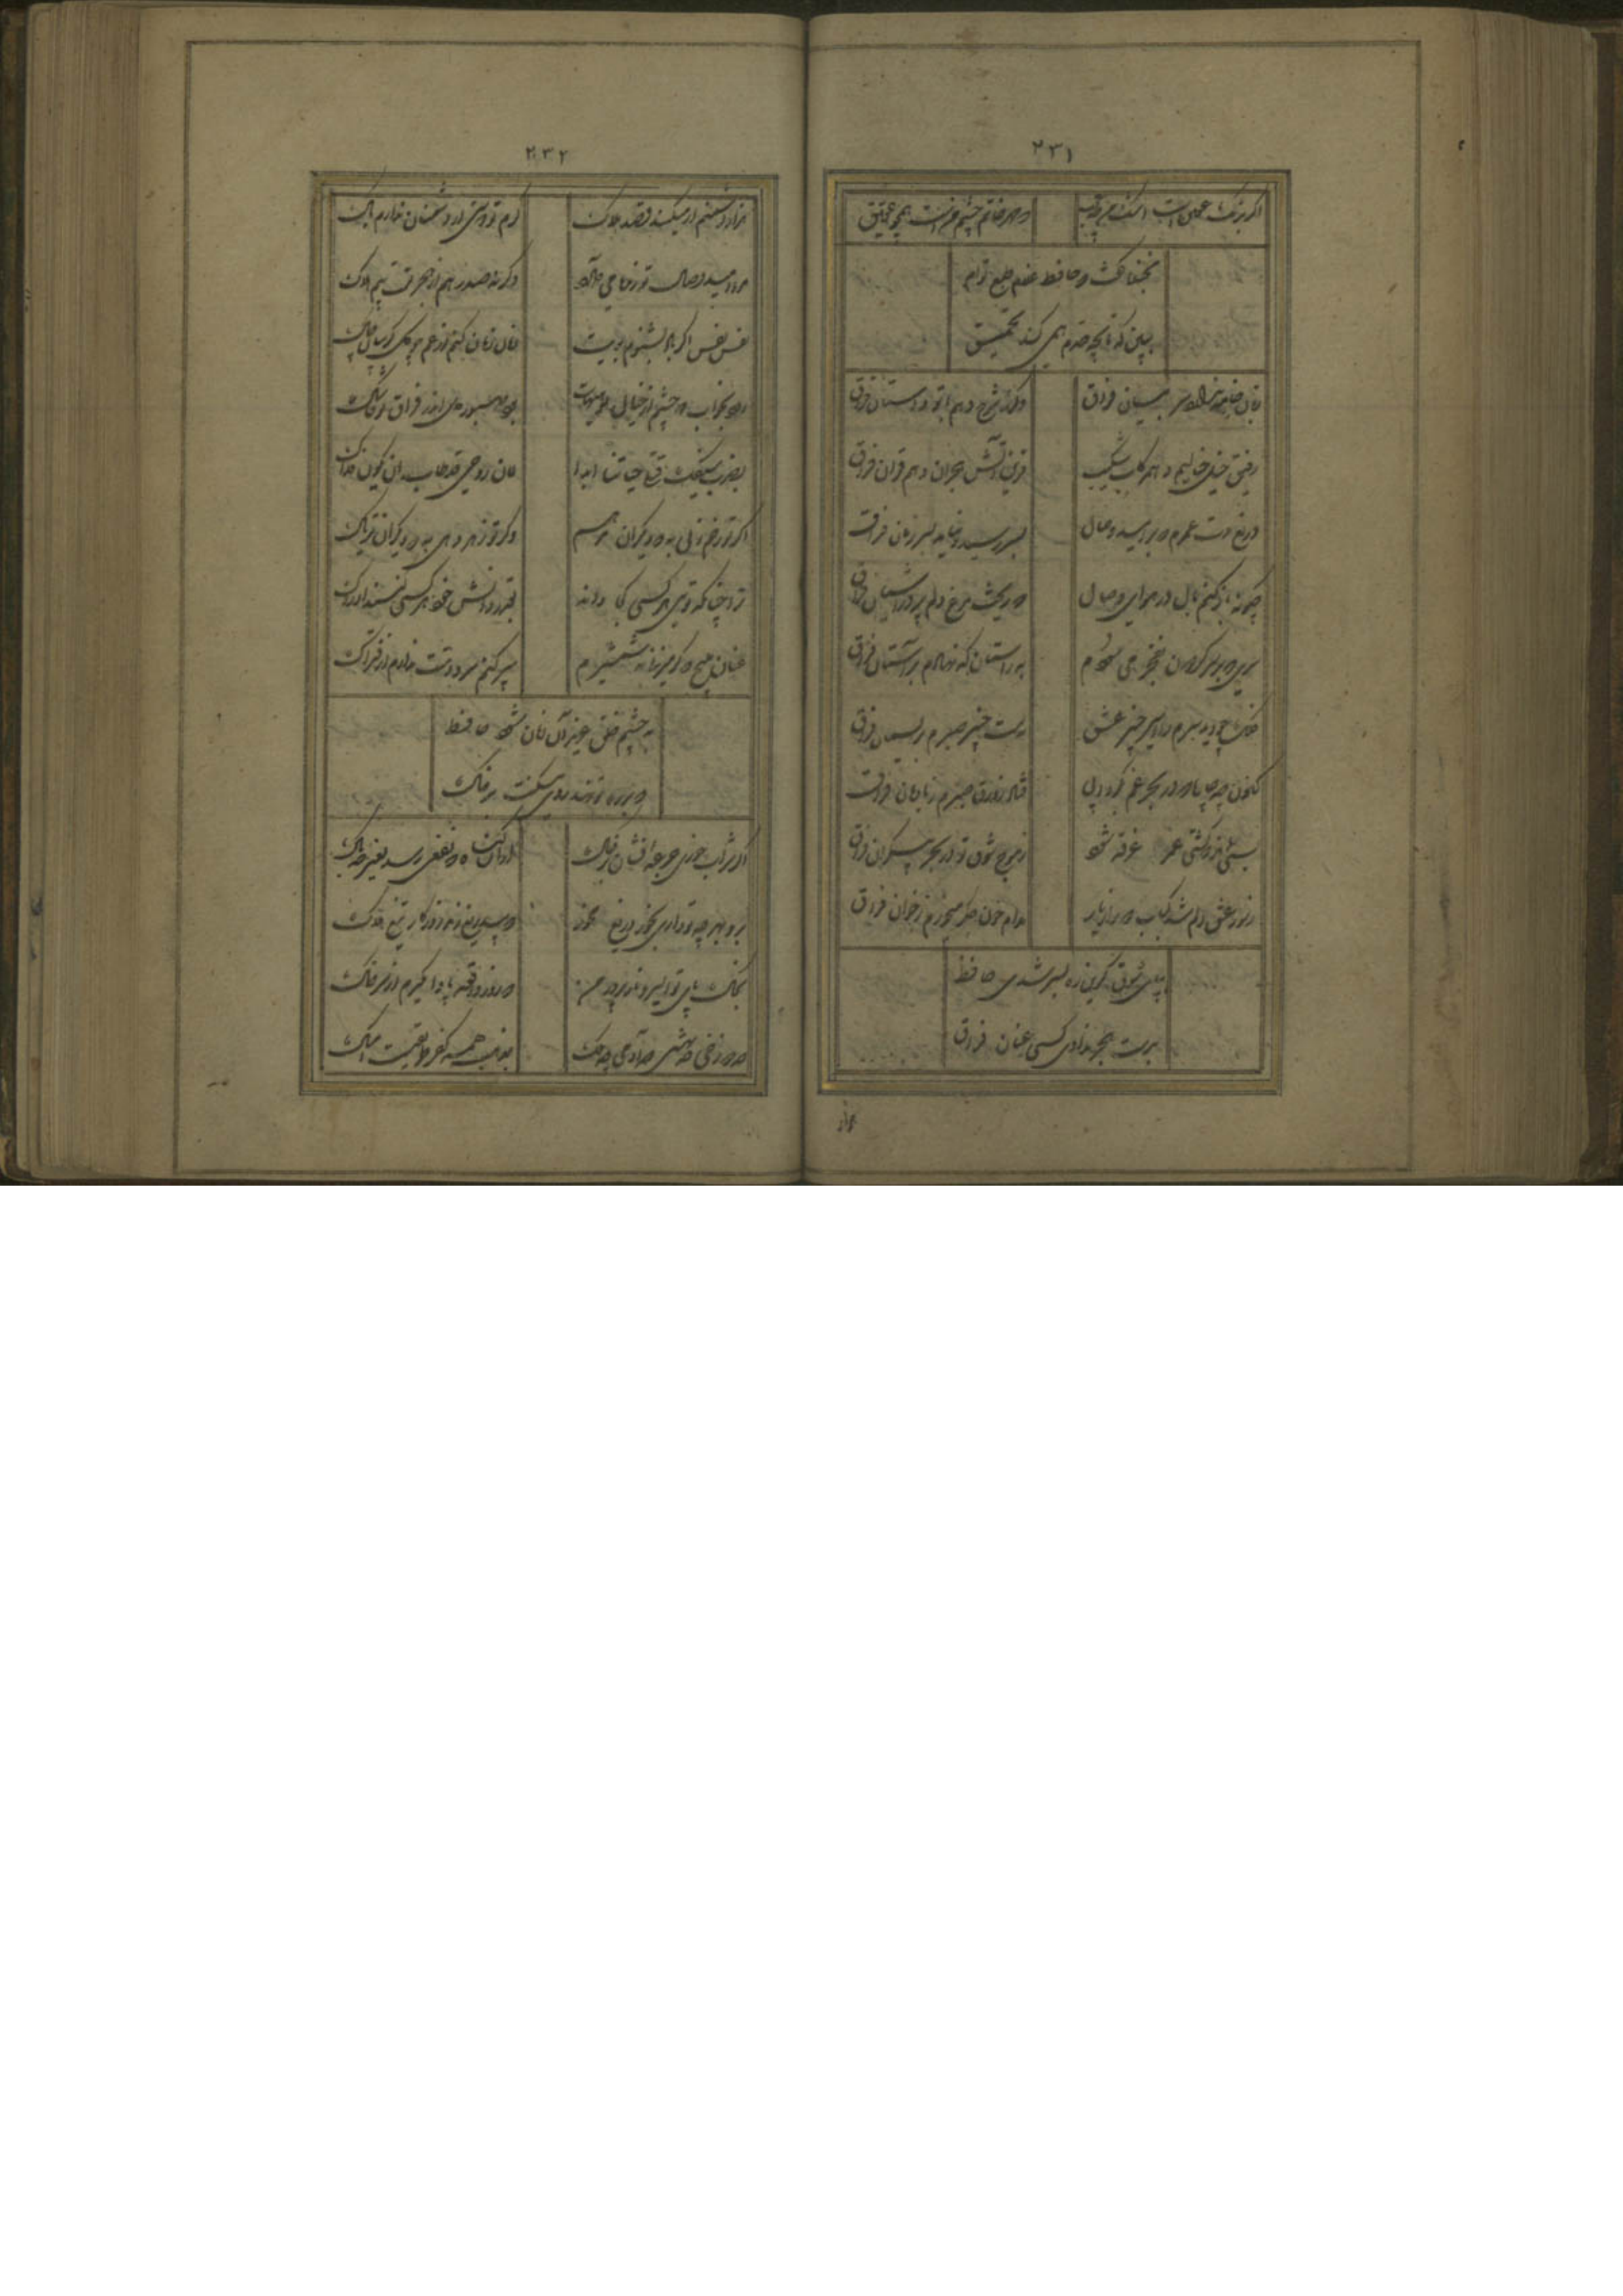 ۲۳۱
اگر برنگ عقیق است اشک من چه عجب
که مهر خاتم چشم منست همچو عقیق
بخنده گفت که حافظ غلام طبع توام
ببین که تا بچه حدم همی کند تحمیق
زبان خامه ندارد سر بیان فراق
وگرنه شرح دهم با تو داستان فراق
رفیق خیل خیالیم و همرکاب شکیب
قرین آتش هجران و هم قران فراق
دریغ مدت عمرم که بر امید وصال
بسر رسید و نیامد بسر زمان فراق
چگونه باز کنم بال در هوای وصال
که ریخت مرغ دلم پر در آشیان فراق
سری که بر سر گردون بفخر می سودم
براستان که نهادم بر آستان فراق
فلک چو دید سرم را اسیر چنبر عشق
ببست چنبر صبرم بریسمان فراق
کنون چه چاره که در بحر غم بگردابی
فتاد زورق صبرم ز بادبان فراق
بسی نماند که کشتی عمر غرقه شود
ز موج شوق تو در بحر بیکران فراق
ز سوز عشق دلم شد کباب دور از یار
مدام خون جگر میخورم ز خوان فراق
بپای شوق گر این ره بسر شدی حافظ
بدست هجر ندادی کسی عنان فراق
هزار
۲۳۲
هزار دشمنم ار میکنند قصد هلاک
گرم تو دوستی از دشمنان ندارم باک
مرا امید وصال تو زنده می دارد
وگرنه صد رهم از هجر تست بیم هلاک
نفس نفس اگر از باد نشنوم بویت
زمان زمان کنم از غم چو گل گریبان چاک
رود بخواب دو چشم از خیال تو هیهات
بود صبور دل اندر فراق تو حاشاک
بضرب سیفک قتلی حیاتنا ابدا
لان روحی قد طاب ان یکون فداک
اگر تو زخم زنی به که دیگران مرهم
وگر تو زهر دهی به که دیگران تریاک
ترا چنانکه توی هر کسی کجا داند
بقدر دانش خود هر کسی کنند ادراک
عنان مپیچ که گر میزنی بشمشیرم
سپر کنم سر و دستت ندارم از فتراک
به چشم خلق عزیز آن زمان شود حافظ
که بر در تو نهد روی مسکنت بر خاک
اگر شراب خوری جرعه افشان بر خاک
از آن گناه که نفعی رسد بغیر چه باک
برو بهر چه تو داری بخور دریغ مخور
که بیدریغ زند روزگار تیغ هلاک
بخاک پای تو ای سرو ناز پرور من
که روز واقعه پا وا مگیرم از سر خاک
چه دوزخی چه بهشتی چه آدمی چه ملک
بمذهب همه کفر طریقتست امساک